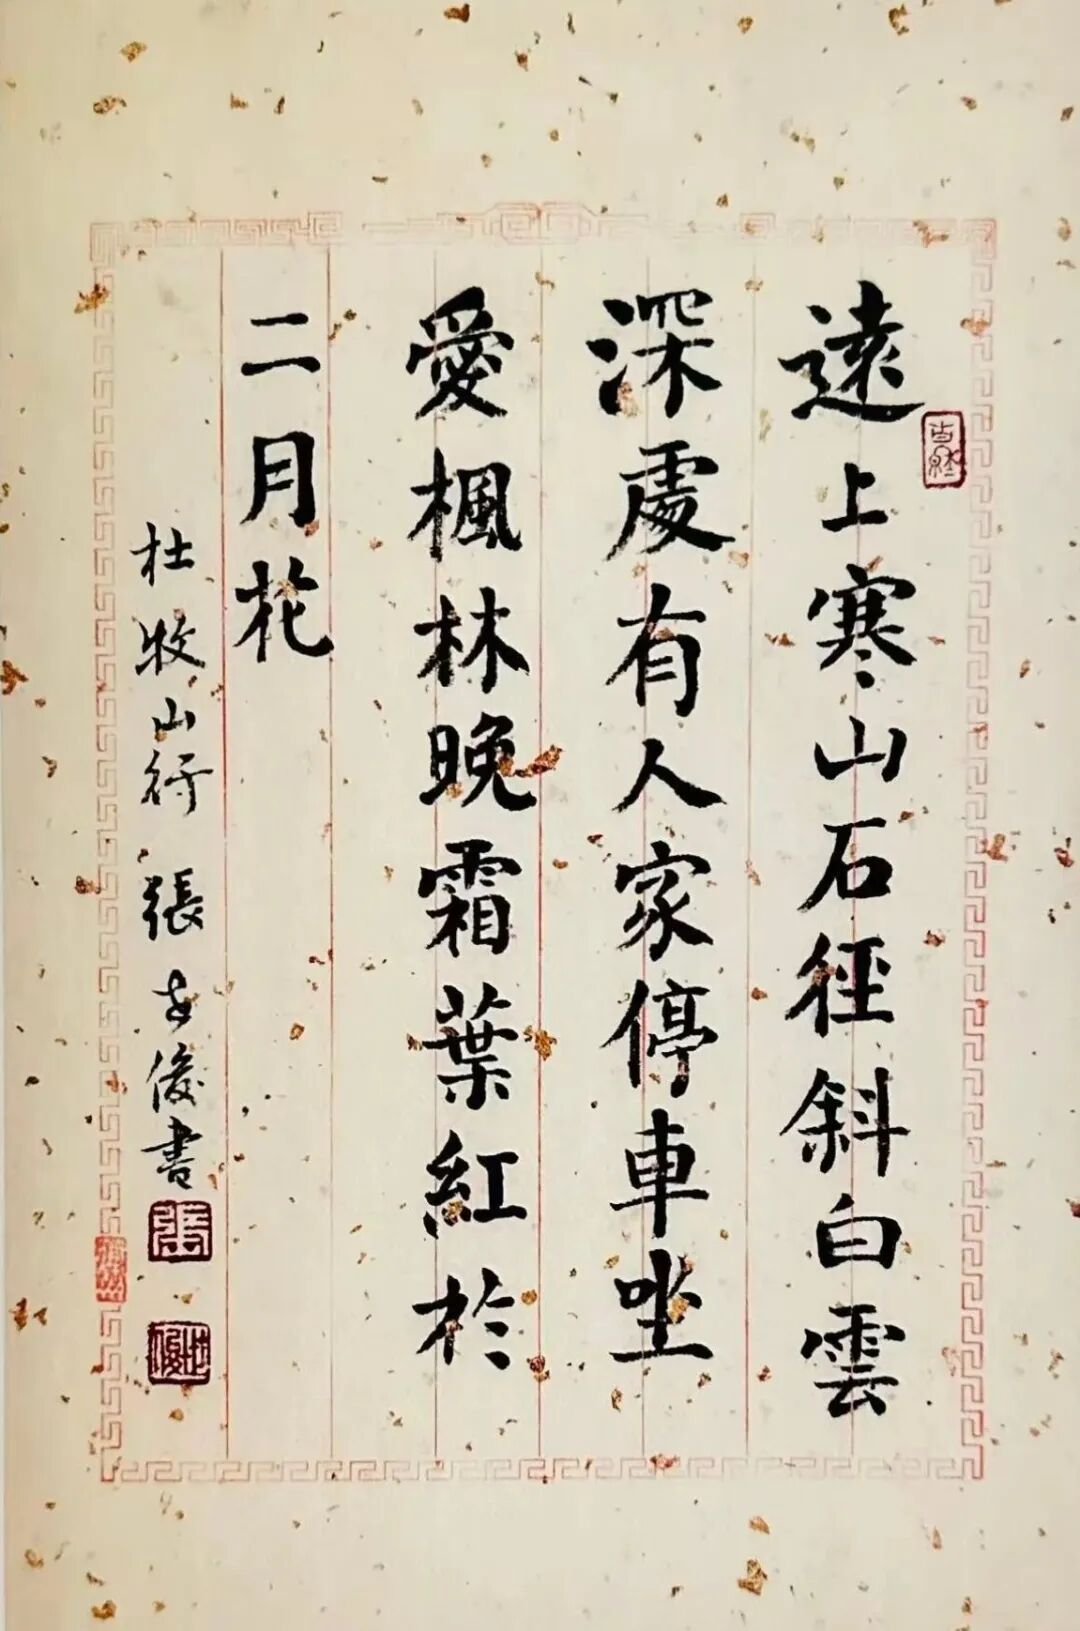 遠上寒山石徑斜白雲
深處有人家停車坐
愛楓林晚霜葉紅於
二月花
杜牧山行 張 俊書